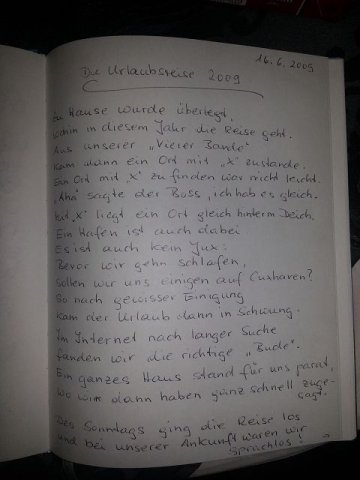 16.6.2009
Die Urlaubsreise 2009
Zu Hause wurde überlegt,
wohin in diesem Jahr die Reise geht.
Aus unserer „Vierer Bande"
kam dann ein Ort mit „X" zustande.
Ein Ort mit „X" zu finden war nicht leicht.
„Aha" sagte der Boss, ich hab es gleich.
mit „X" liegt ein Ort gleich hinterm Deich.
Ein Hafen ist auch dabei
Es ist auch kein Jux:
Bevor wir gehn schlafen,
sollen wir uns einigen auf Cuxhaven?
So nach gewisser Einigung
kam der Urlaub dann in Schwung.
Im Internet nach langer Suche
fanden wir die richtige „Bude".
Ein ganzes Haus stand für uns parat,
wo wir dann haben ganz schnell zuge-
sagt.
Des Sonntags ging die Reise los
und bei unserer Ankunft waren wir
sprachlos!